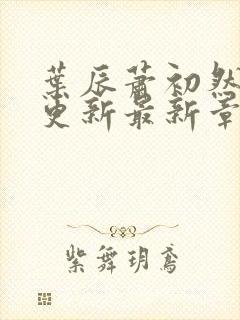 葉辰蕭初然
更新最新章
紫舞玥鳶